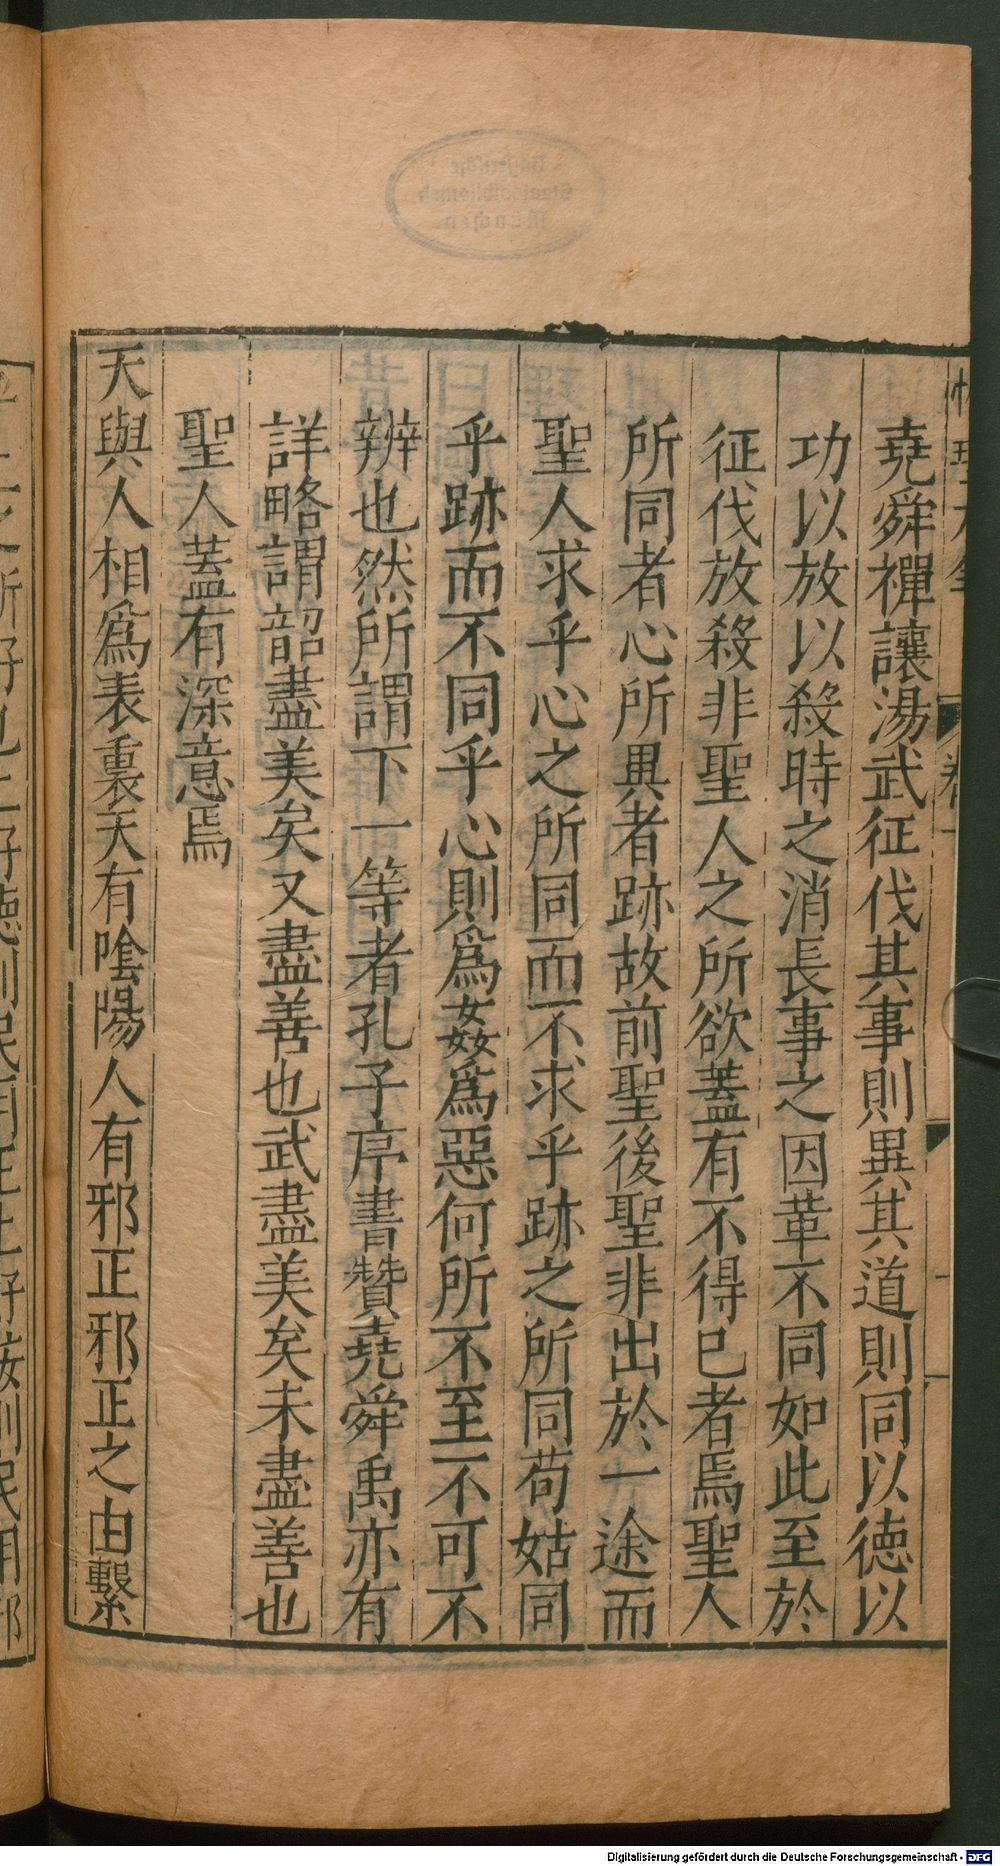 堯舜禪讓湯武征伐其事則異其道則同以德以
功以放以殺時之消長事之因革不同如此至於
征伐放殺非聖人之所欲蓋有不得已者焉聖人
所同者心所異者跡故前聖後聖非出於一途而
聖人求乎心之所同而不求乎跡之所同苟姑同
乎跡而不同乎心則為姦為惡何所不至不可不
辨也然所謂下一等者孔子序書贊堯舜禹亦有
詳略謂韶盡美矣又盡善也武盡美矣未盡善也
聖人蓋有深意焉
天與人相為表裏天有陰陽人有邪正邪正之由繫
Bayerische
Staatsbibliothek
München
Digitalisierung gefördert durch die Deutsche Forschungsgemeinschaft - DFG